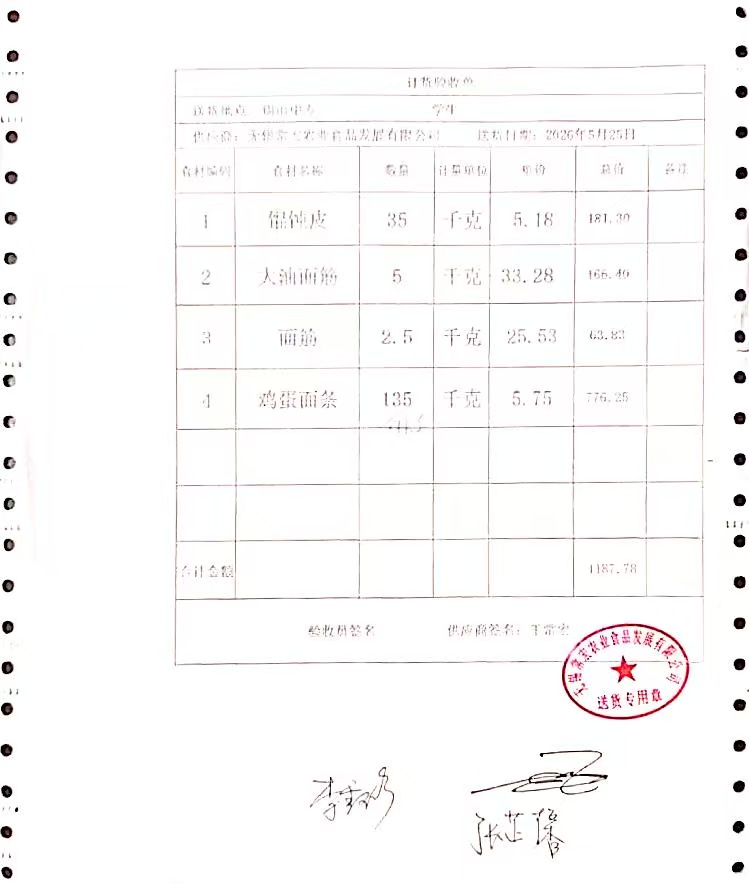 计货验收单
送货地点 锡山中专 学生
供应商: 无锡常宏农业食品发展有限公司 送货日期: 2026年5月25日
食材编码 食材名称 数量 计量单位 单价 总价 备注
1 馄饨皮 35 千克 5.18 181.30
2 大油面筋 5 千克 33.28 166.40
3 面筋 2.5 千克 25.53 63.83
4 鸡蛋面条 135 千克 5.75 776.25
合计金额 1187.78
验收员签名 供应商签名: 王常宏
无锡常宏农业食品发展有限公司
送货专用章
张芷馨